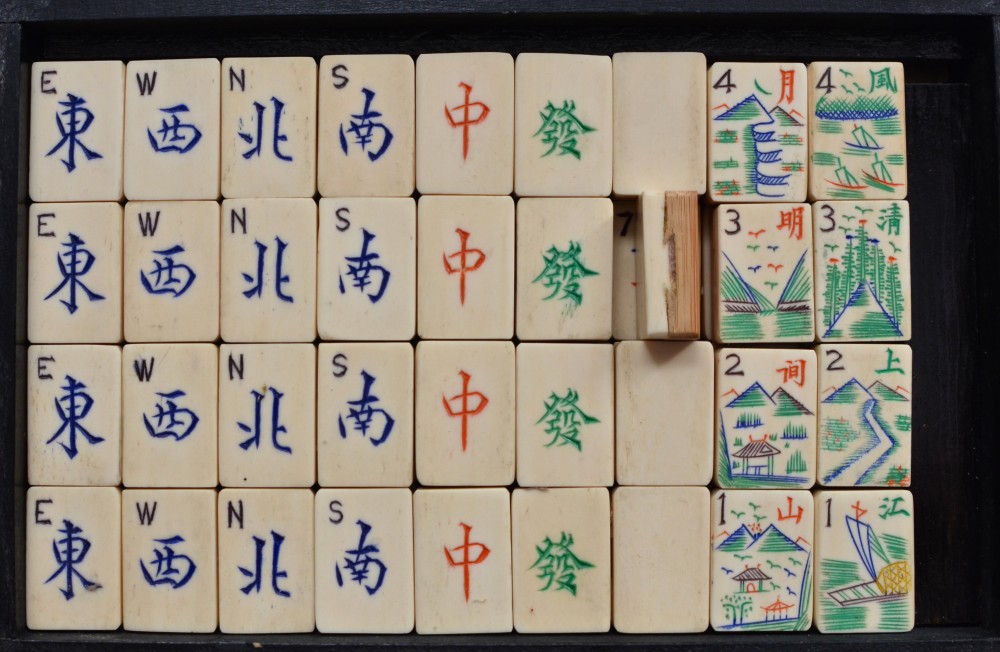 E 東 W 西 N 北 S 南 中 發 4 月 4 風
E 東 W 西 N 北 S 南 中 發 7 3 明 3 清
E 東 W 西 N 北 S 南 中 發 2 间 2 上
E 東 W 西 N 北 S 南 中 發 1 山 1 江